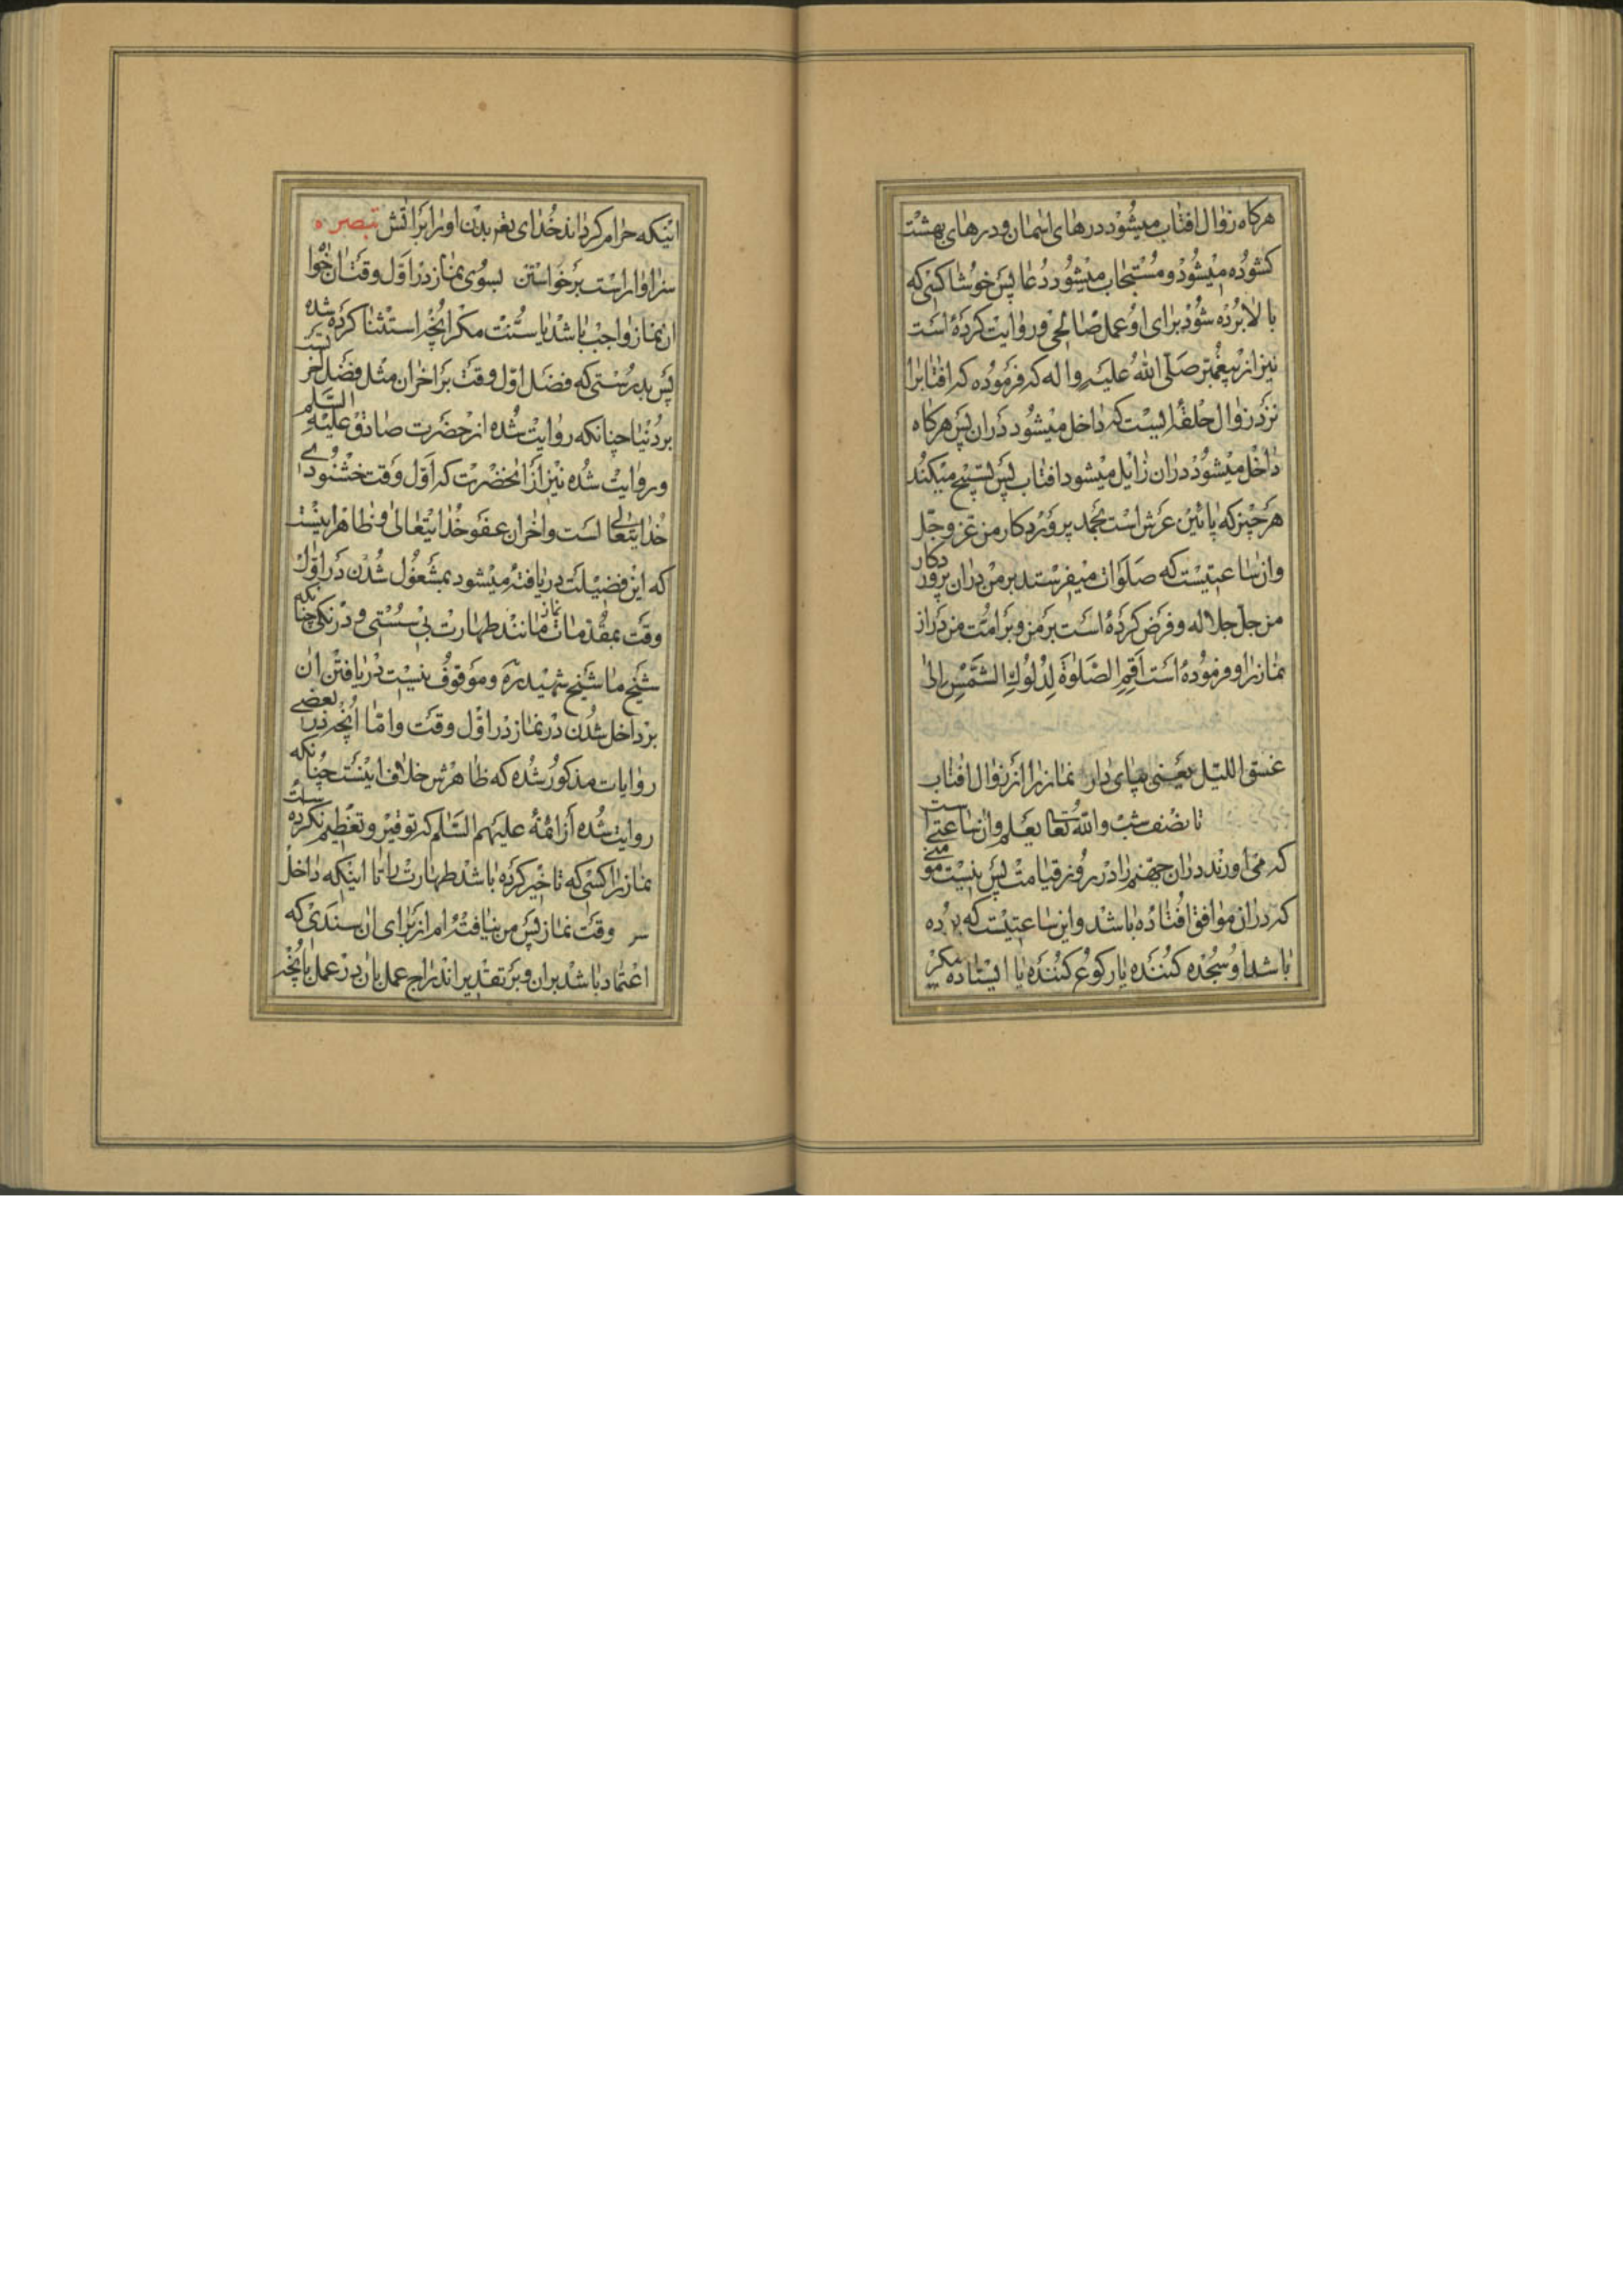 هرکاه زوال افتاب میشود درهای اسمان و درهای بهشت
کشوده میشود و مستجاب میشود دعا پس خوشا کسی که
بالا برده شود برای او عمل صالحی و روایت کرده است
نیز از پیغمبر صلی الله علیه و اله که فرموده که افتاب را
نزد زوال حلقه ایست که داخل میشود دران پس هرکاه
داخل میشود دران زایل میشود افتاب پس تسبیح میکند
هر چیز که پائین عرش است بحمد پروردکار من عز و جل
وان ساعتیست که صلوات میفرستد بر من دران پروردکار
من جل جلاله و فرض کرده است بر من و بر امت من دران
نماز را و فرموده است اقم الصلوة لدلوك الشمس الی
غسق اللیل یعنی بپای دار نماز را از زوال افتاب
تا نصف شب والله تعا یعلم وان ساعتی است
که می اورند دران جهنم را در روز قیامت پس نیست مومنی
که دران موافق افتاده باشد و این ساعتیست که بوده
باشد او سجده کننده یا رکوع کننده یا ایستاده مکر
اینکه حرام کرداند خدای تعم بدن او را بر اتش تبصره
سزاوار است برخواستن بسوی نماز در اول وقت ان خوا
ان نماز واجب باشد یا سنت مکر انچه استثنا کرده شده
پس بدرستی که فضل اول وقت بر اخران مثل فضل اخرتست
بر دنیا چنانکه روایت شده از حضرت صادق علیه السلم
و روایت شده نیز از انحضرت که اول وقت خشنودی
خدایتعالی است و اخران عفو خدایتعالی و ظاهر اینست
که این فضیلت دریافته میشود بمشغول شدن در اول
وقت بمقدمات نماز مانند طهارت بی سستی و درنکی چنانکه
شیخ ما شیخ شهید ره و موقوف نیست دریافتن ان
بر داخل شدن در نماز در اول وقت و اما انچه در بعضی
روایات مذکور شده که ظاهرش خلاف اینست چنانکه
روایت شده از ائمه علیهم السلم که توقیر و تعظیم نکرده است
نماز را کسی که تاخیر کرده باشد طهارت را تا اینکه داخل
وقت نماز پس من نیافته ام از برای ان سندی که
اعتماد باشد بران و بر تقدیر اندراج عمل بان در عمل بانچه